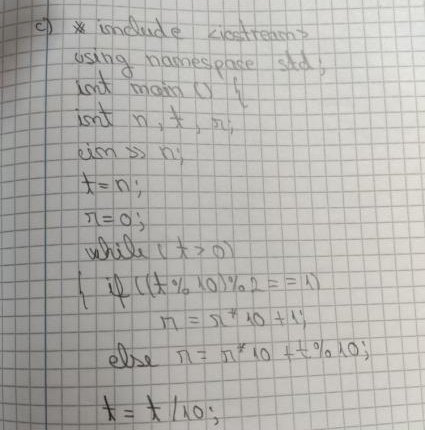 c) * include <iostream>
using namespace std;
int main () {
int n, t, r;
cin >> n;
t = n;
r = 0;
while (t > 0)
{ if ((t % 10) % 2 == 1)
r = r * 10 + 1;
else r = r * 10 + t % 10;
t = t / 10;